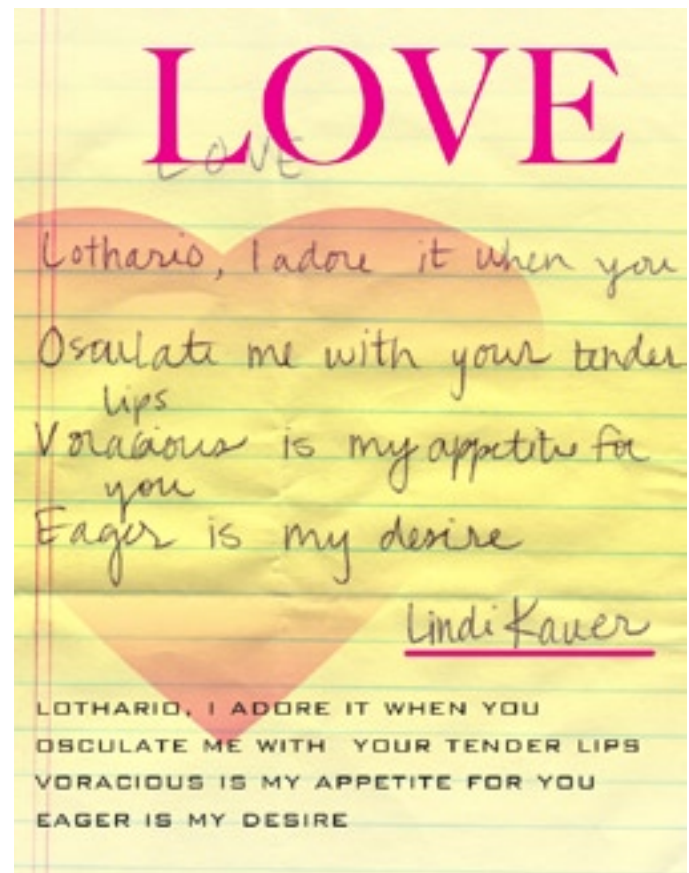 LOVE
LOVE
Lothario, I adore it when you
Osculate me with your tender
lips
Voracious is my appetite for
you
Eager is my desire
Lindi Kauer
LOTHARIO, I ADORE IT WHEN YOU
OSCULATE ME WITH YOUR TENDER LIPS
VORACIOUS IS MY APPETITE FOR YOU
EAGER IS MY DESIRE